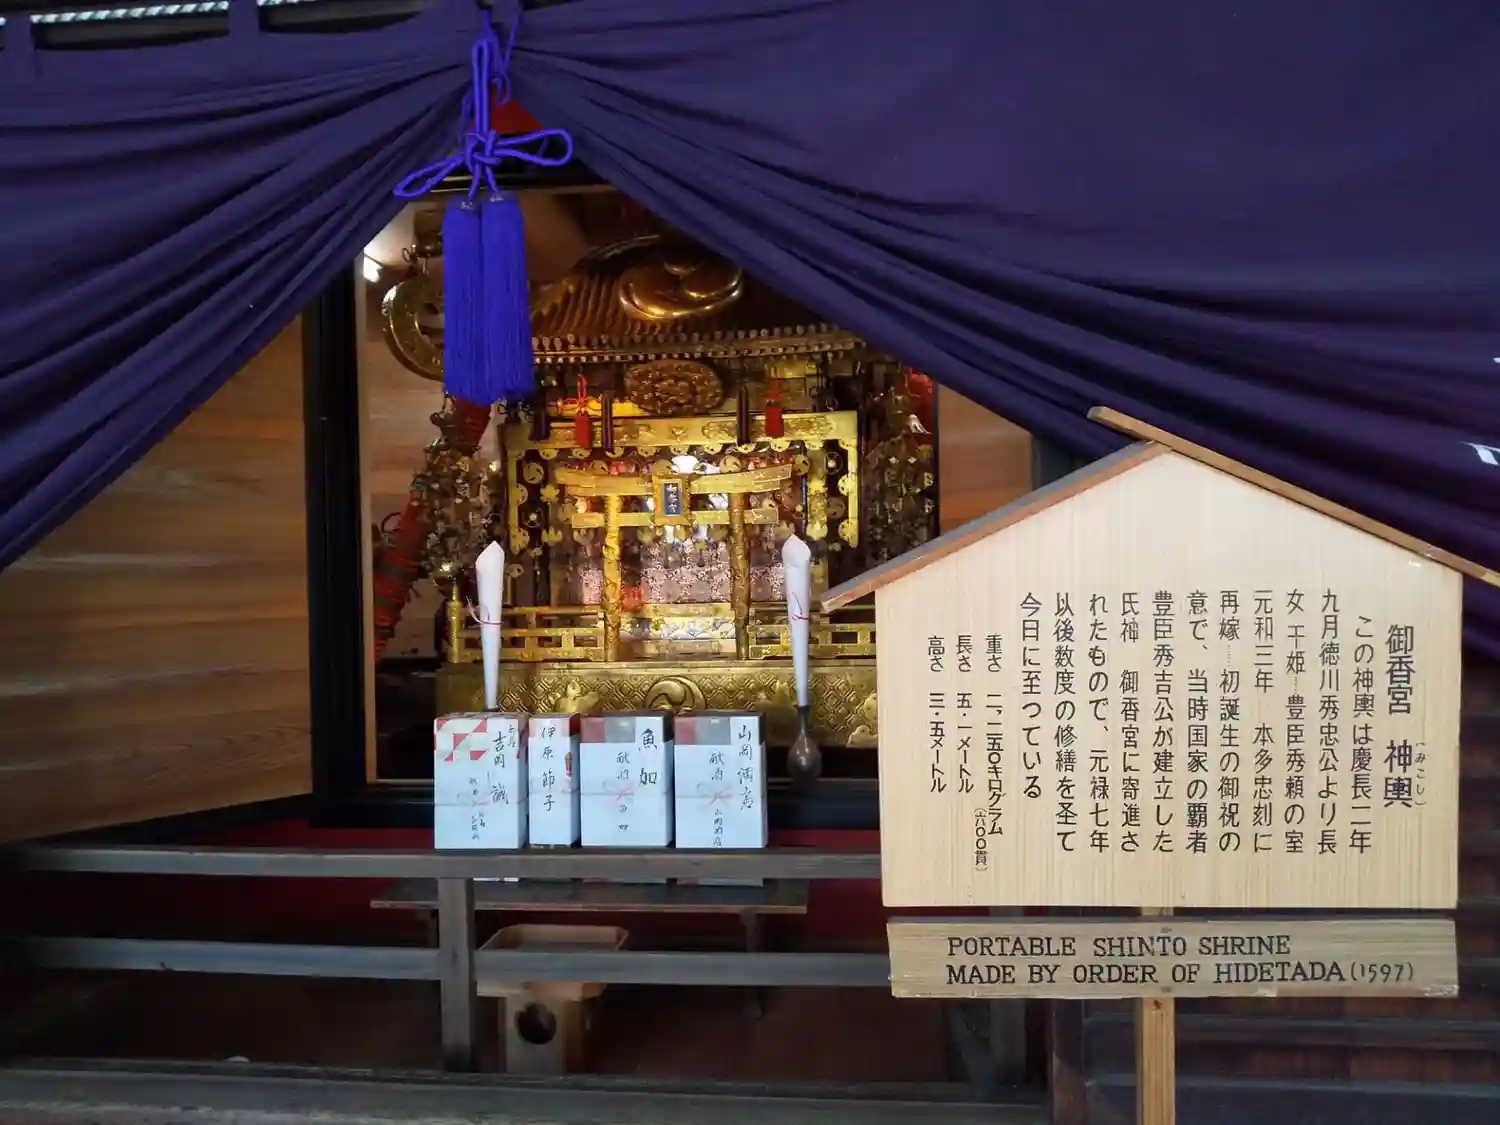 御香宮 神輿
(みこし)
この神輿は慶長二年
九月徳川秀忠公より長
女千姫…豊臣秀頼の室
元和三年 本多忠刻に
再嫁…初誕生の御祝の
意で、当時国家の覇者
豊臣秀吉公が建立した
氏神 御香宮に寄進さ
れたもので、元禄七年
以後数度の修繕を圣て
今日に至つている
重さ 二.二五〇キログラム
(六〇〇貫)
長さ 五.一メートル
高さ 三.五メートル
PORTABLE SHINTO SHRINE
MADE BY ORDER OF HIDETADA(1597)
御香宮
山岡酒店
献酒
山岡酒店
魚加
献酒
魚加
伊原節子
吉岡
誠